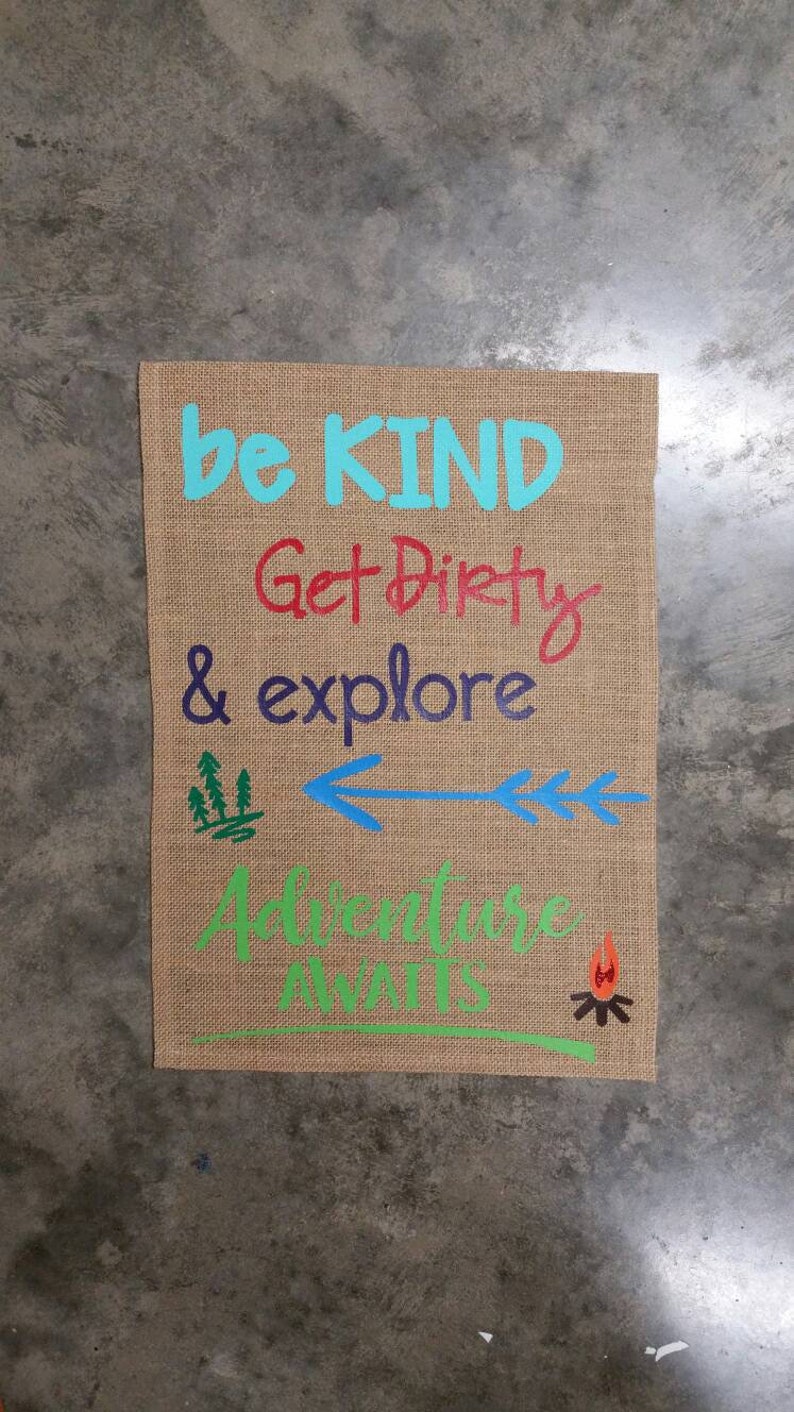 be KIND
Get Dirty
& explore
Adventure
AWAITS